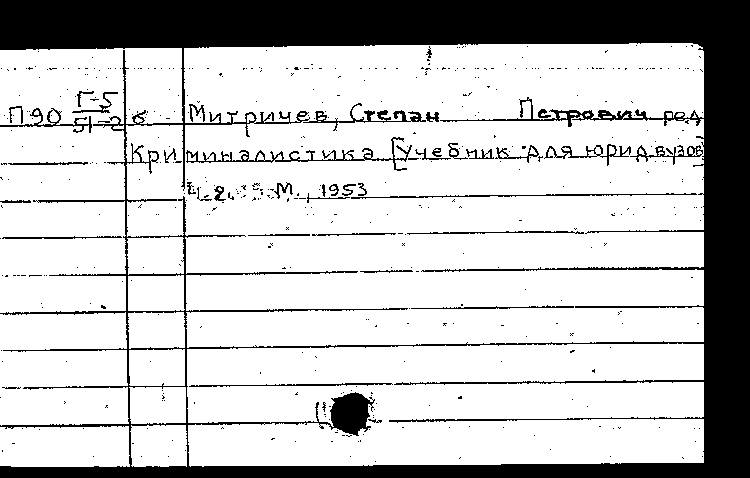 П90 Г-5/51-2 б Митричев, Степан Петрович ред
Криминалистика [Учебник для юрид. вузов]
2. М., 1953